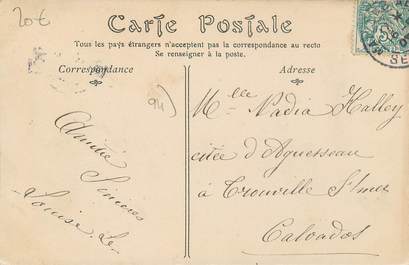 20€
Carte Postale
Tous les pays étrangers n'acceptent pas la correspondance au recto
Se renseigner à la poste.
Correspondance
Adresse
94
Amitié
Louise
Mlle Nadia Halley
citée d'Aguesseau
à Trouville S/mer
Calvados
5
SE